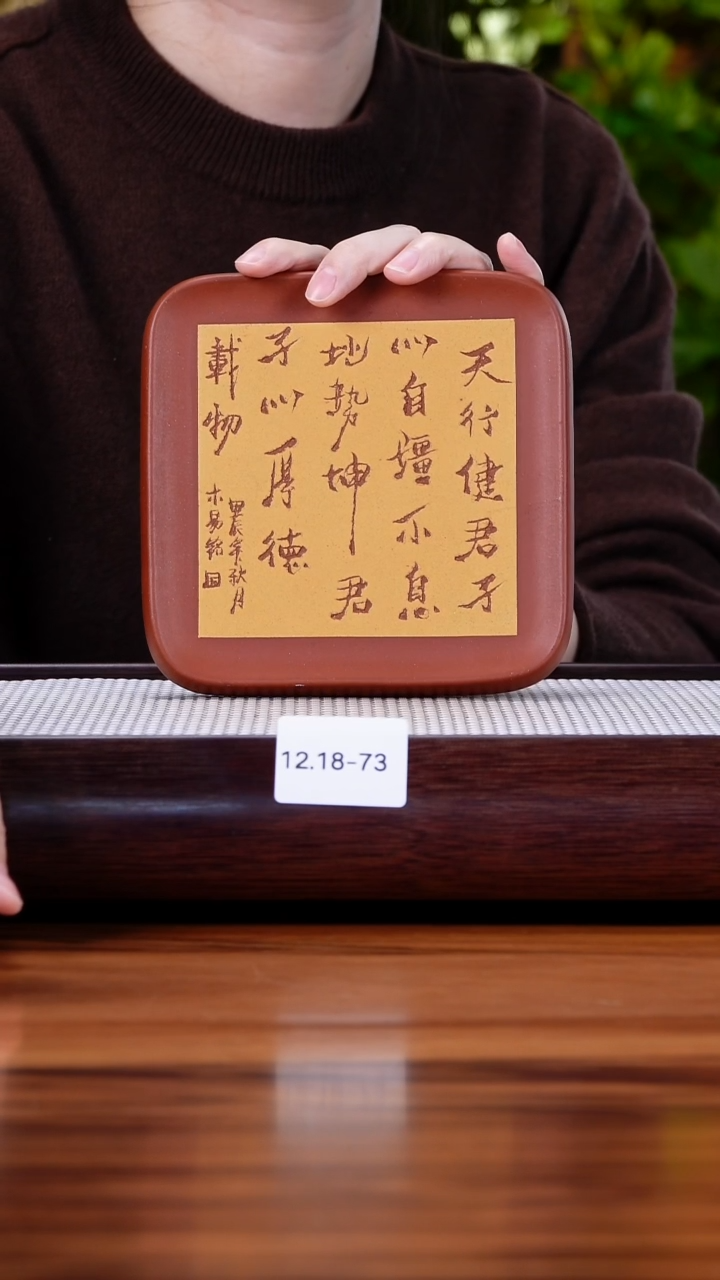 天行健君子
以自彊不息
地势坤君
子以厚德
載物
甲辰年秋月
木易銘
12.18-73